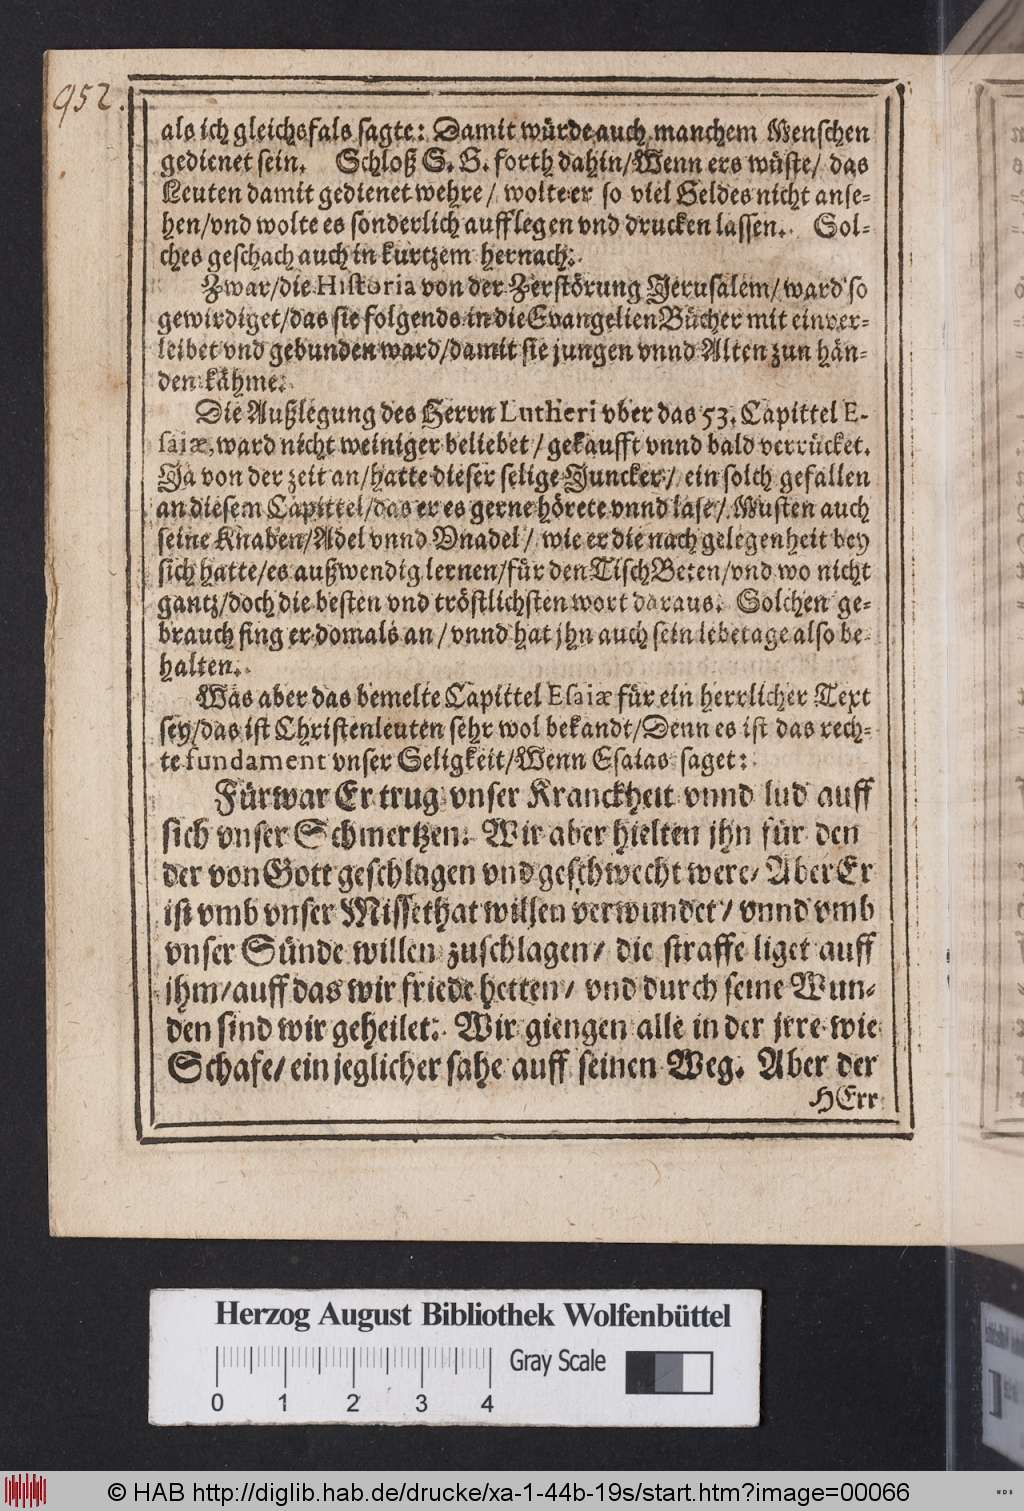 952.
als ich gleichsfals sagte: Damit würde auch manchem Menschen
gedienet sein. Schloß S. G. forth dahin/Wenn ers wüste/ das
Leuten damit gedienet wehre/ wolte er so viel Geldes nicht anse-
hen/vnd wolte es sonderlich aufflegen vnd drucken lassen. Sol-
ches geschach auch in kurtzem hernach.
Zwar/die Historia von der Zerstörung Jerusalem/ ward so
gewirdiget/das sie folgends in die Evangelien Bücher mit einver-
leibet vnd gebunden ward/damit sie jungen vnnd Alten zun hän-
den kähme.
Die Außlegung des Herrn Lutheri vber das 53. Capittel E-
saiæ, ward nicht weiniger beliebet/ gekaufft vnnd bald verrücket.
Ja von der zeit an/hatte dieser selige Juncker/ ein solch gefallen
an diesem Capittel/das er es gerne hörete vnnd lase/ Musten auch
seine Knaben/Adel vnnd Vnadel/ wie er die nach gelegenheit bey
sich hatte/es außwendig lernen/für den Tisch Beten/vnd wo nicht
gantz/doch die besten vnd tröstlichsten wort daraus. Solchen ge-
brauch fing er domals an/ vnnd hat jhn auch sein lebetage also be-
halten.
Was aber das bemelte Capittel Esaiæ für ein herrlicher Text
sey/das ist Christenleuten sehr wol bekandt/Denn es ist das rech-
te fundament vnser Seligkeit/Wenn Esaias saget:
Fürwar Er trug vnser Kranckheit vnnd lud auff
sich vnser Schmertzen. Wir aber hielten jhn für den
der von Gott geschlagen vnd geschwecht were/ Aber Er
ist vmb vnser Missethat willen verwundet/ vnnd vmb
vnser Sünde willen zuschlagen/ die straffe liget auff
jhm/auff das wir friede hetten/ vnd durch seine Wun-
den sind wir geheilet. Wir giengen alle in der jrre wie
Schafe/ ein jeglicher sahe auff seinen Weg. Aber der
HErr
Herzog August Bibliothek Wolfenbüttel
0 1 2 3 4 Gray Scale
© HAB http://diglib.hab.de/drucke/xa-1-44b-19s/start.htm?image=00066